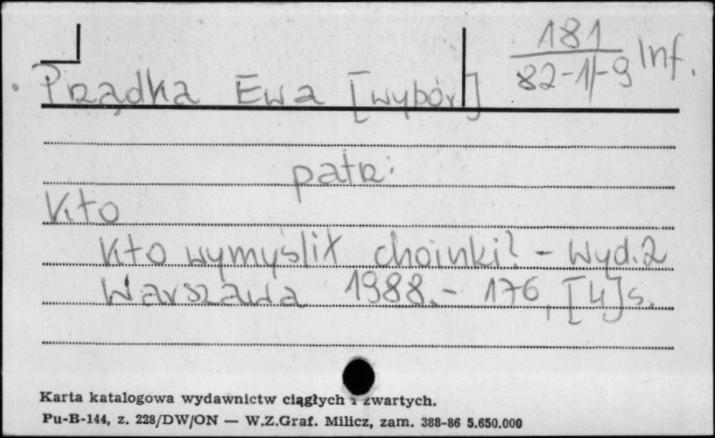 181
82-1/-9 Inf.
Prządka Ewa [wybór]
patrz:
Kto
Kto wymyślił choinki? - Wyd.2
Warszawa 1988.- 176, [4]s.
Karta katalogowa wydawnictw ciągłych i zwartych.
Pu-B-144, z. 228/DW/ON — W.Z.Graf. Milicz, zam. 388-86 5.650.000